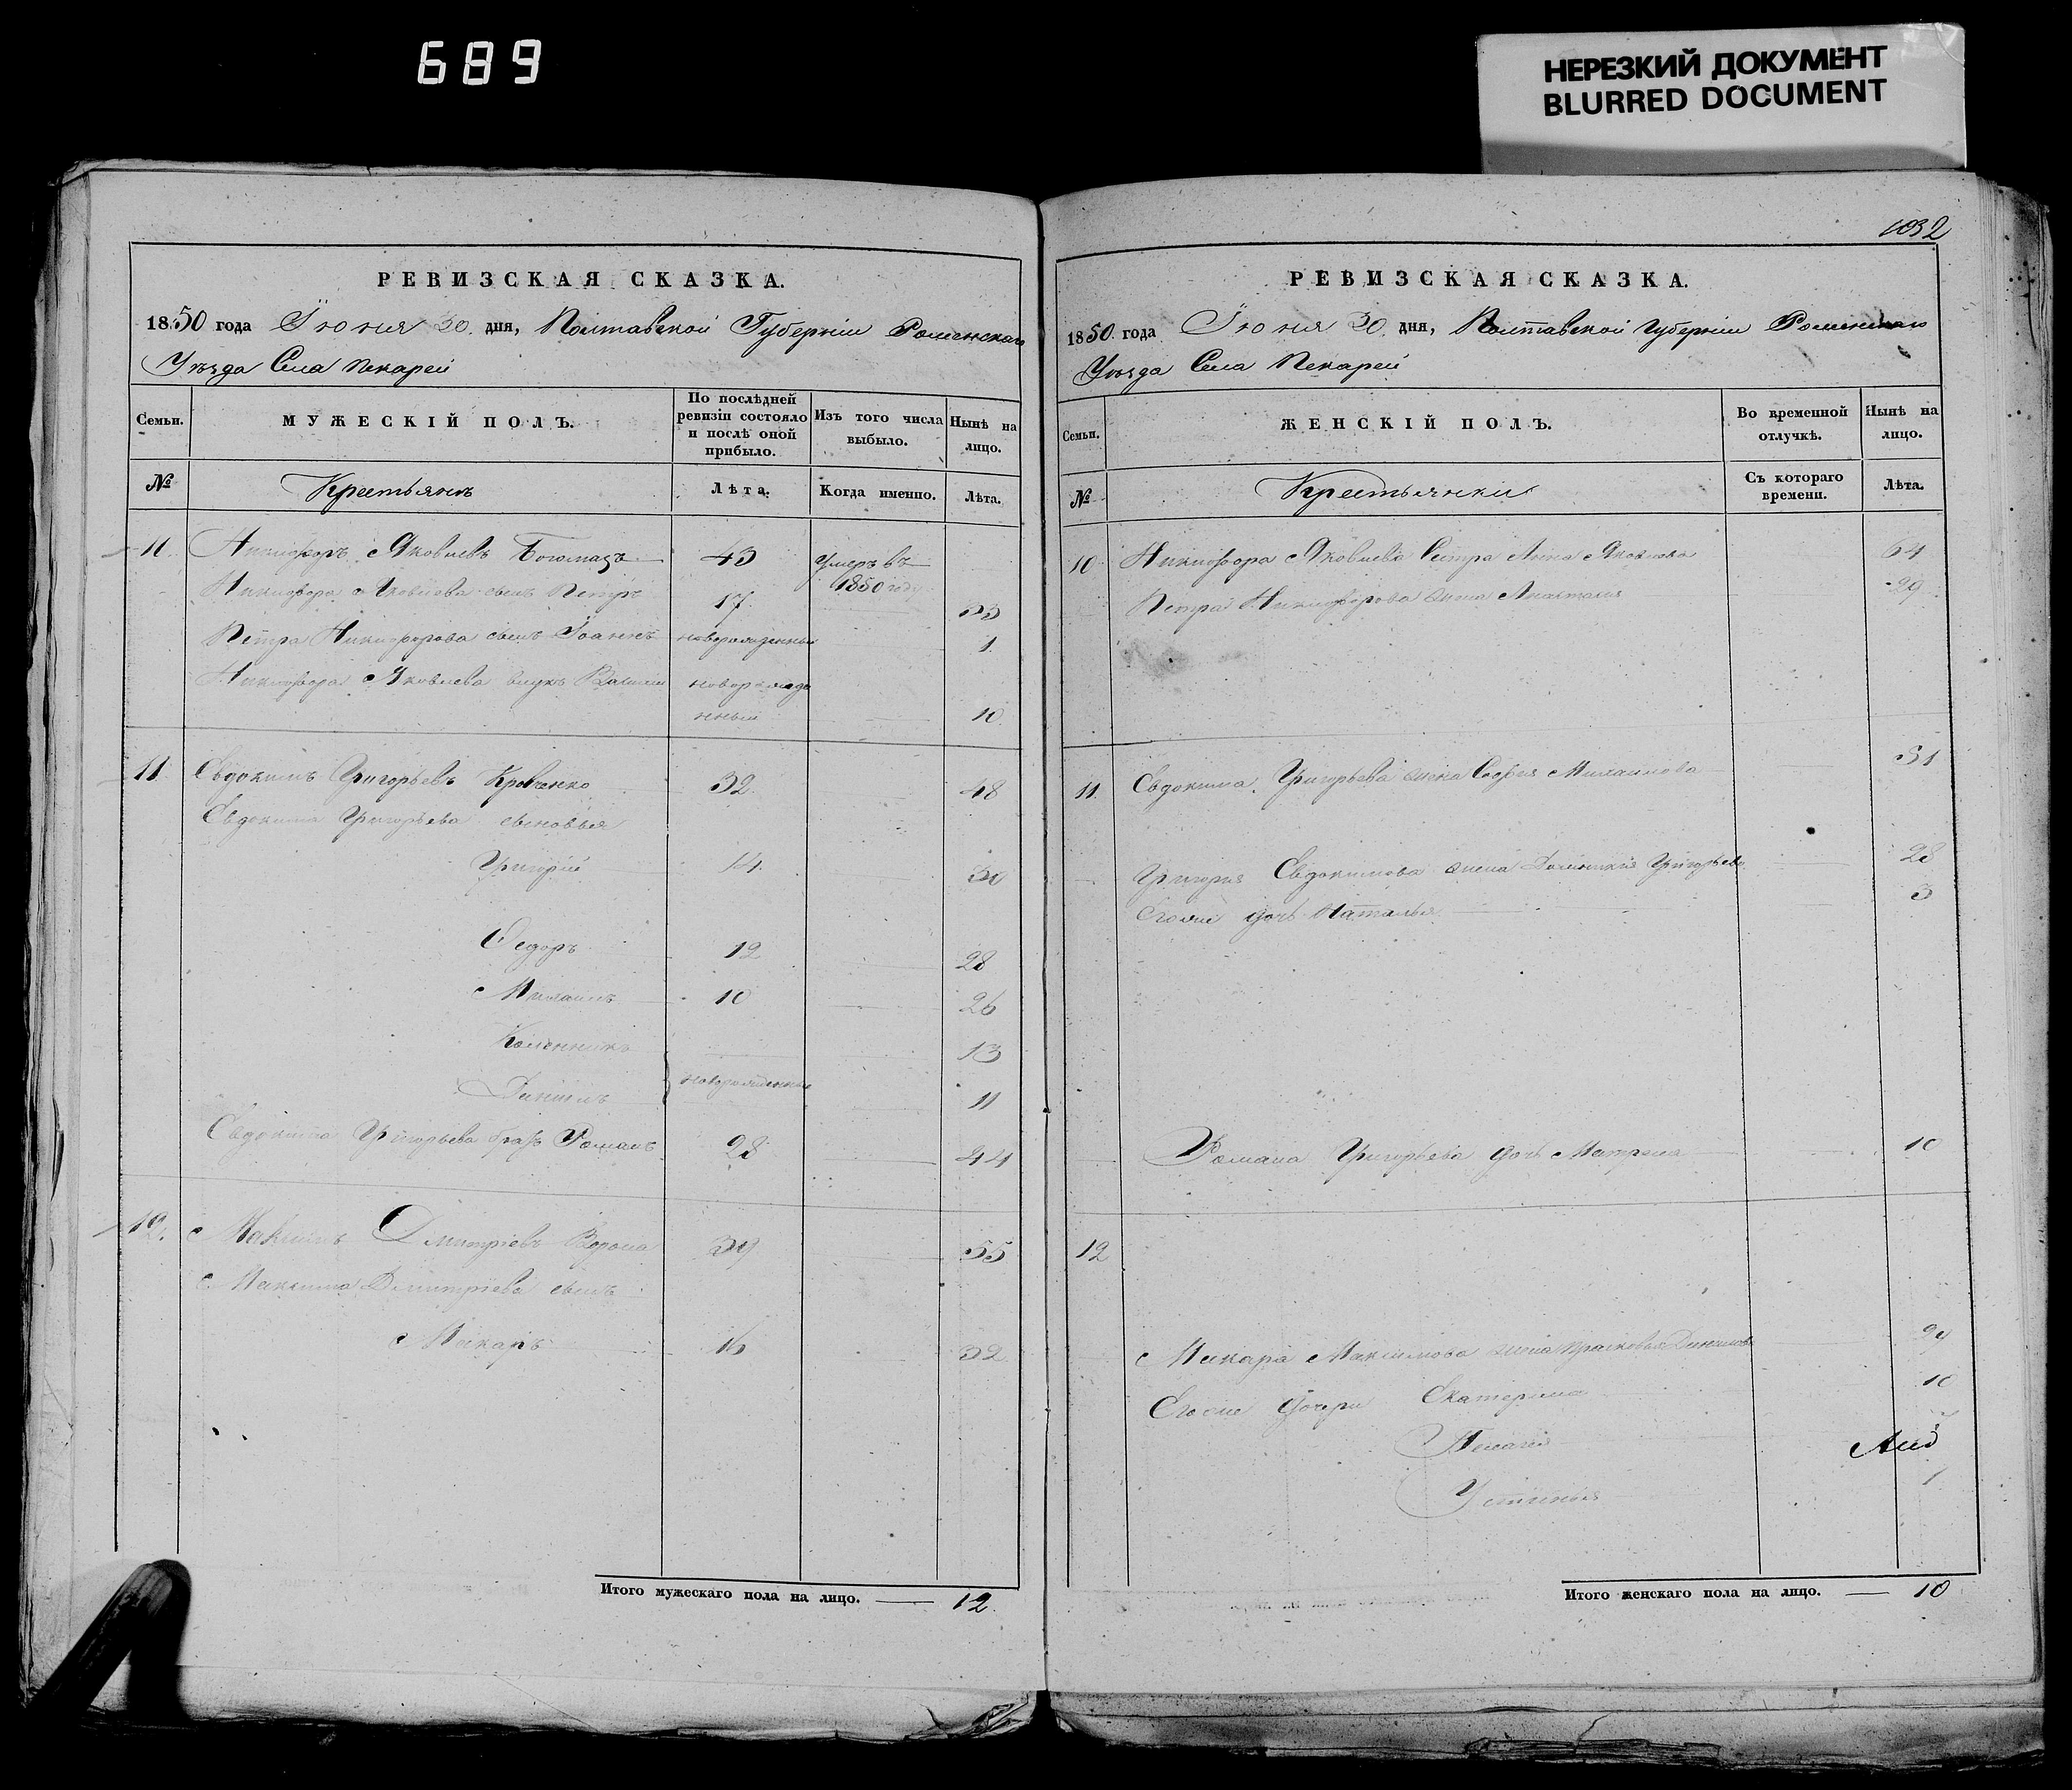 689
НЕРЕЗКИЙ ДОКУМЕНТ
BLURRED DOCUMENT
РЕВИЗСКАЯ СКАЗКА.
1850 года Іюня 30. дня, Полтавской Губерніи Роменскаго
Уѣзда Села Пекарей
Семьи.
МУЖЕСКІЙ ПОЛЪ.
По послѣдней ревизіи состояло и послѣ оной прибыло.
Изъ того числа выбыло.
Нынѣ на лицо.
№
Крестьянъ
Лѣта.
Когда именно.
Лѣта.
Никифоръ Яковлевъ Богомазъ 43 Умеръ въ
1850 году
Никифора Яковлева сынъ Петръ 17. 33
Петра Никифорова сынъ Іоаннъ новорожденный 1.
Никифора Яковлева внукъ Василій новорожде
нный 10.
11. Евдокимъ Григорьевъ Кравченко 32. 48
Евдокима Григорьева сыновья
Григорій 14. 30
Федоръ 12 28
Михаилъ 10 26
13
Данiилъ новорожденные 11
Евдокима Григорьева братъ Романъ 28 44
12. Максимъ Дмитріевъ Ворона 39 55
Максима Дмитріева сынъ
Макаръ 16 32
Итого мужескаго пола на лицо. 12.
1032
РЕВИЗСКАЯ СКАЗКА.
1850 года Іюня 30 дня, Полтавской Губерніи Роменскаго
Уѣзда Села Пекарей
Семьи.
ЖЕНСКІЙ ПОЛЪ.
Во временной отлучкѣ.
Нынѣ на лицо.
№
Крестьянки
Съ котораго времени.
Лѣта.
10 Никифора Яковлева Сестра Анна Яковлева 64
Петра Никифорова жена Анастасія 29
11. Евдокима Григорьева жена Софія Михайлова
Григорія Евдокимова жена Григорьева 28
Егоже дочь Наталья 3
Романа Григорьева дочь Матрена 10
12
Макара Максимова жена Прасковья Данилова
Егоже дочери Екатерина 10
Пелагія
Устинья 1
Итого женскаго пола на лицо. 10